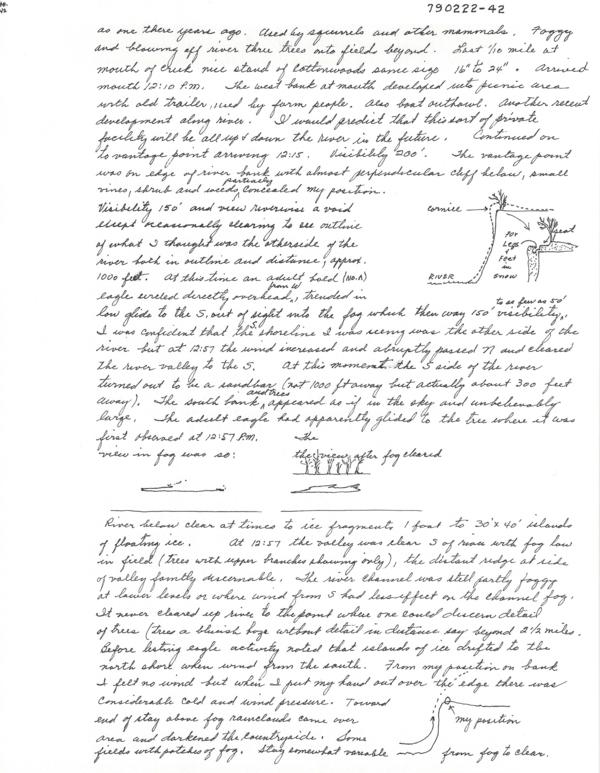 790222-42
as one there years ago. Used by squirrels and other mammals. Foggy
and blowing off river three trees onto fields beyond. Last 1/10 mile at
mouth of creek nice stand of Cottonwoods same size 16" to 24". Arrived
mouth 12:10 P.M. The west bank at mouth developed into picnic area
with old trailer, used by farm people. Also boat outhowl. Another recent
development along river. I would predict that this sort of private
facility will be all up & down the river in the future. Continued on
to vantage point arriving 12:15. Visibility 200'. The vantage point
was on edge of river bank with almost perpendicular cliff below, small
vines, shrub and weeds, partially concealed my position.
Visibility 150' and view riverwise a void
except occasionally clearing to see outline
of what I thought was the otherside of the
river both in outline and distance, approx.
1000 feet. At this time an adult bald (No. A)
eagle circled directly overhead, from W trended in
low glide to the S. out of sight into the fog which then was 150' visibility, to as few as 50'
I was confident that the S. shoreline I was seeing was the other side of the
river but at 12:57 the wind increased and abruptly passed N and cleared
the river valley to the S. At this moment the S side of the river
turned out to be a sandbar (not 1000 ft away but actually about 300 feet
away). The south bank and trees appeared as if in the sky and unbelievably
large. The adult eagle had apparently glided to the tree where it was
first observed at 12:57 P.M. The
view in fog was so: the view after fog cleared
cornice
seat
For
Legs
&
Feet
in
snow
RIVER
River below clear at times to ice fragments 1 foot to 30' x 40' islands
of floating ice. At 12:57 the valley was clear S of river with fog low
in field (trees with upper branches showing only), the distant ridge at side
of valley faintly discernable. The river channel was still partly foggy
at lower levels or where wind from S had less effect on the channel fog.
It never cleared up river to the point where one could discern detail
of trees (trees a bluish haze without detail in distance say beyond 2 1/2 miles.
Before listing eagle activity noted that islands of ice drifted to the
north shore when wind from the south. From my position on bank
I felt no wind but when I put my hand out over the edge there was
considerable cold and wind pressure. Toward
end of stay above fog rainclouds came over
area and darkened the countryside. Some
fields with patches of fog. Stay somewhat variable from fog to clear.
my position